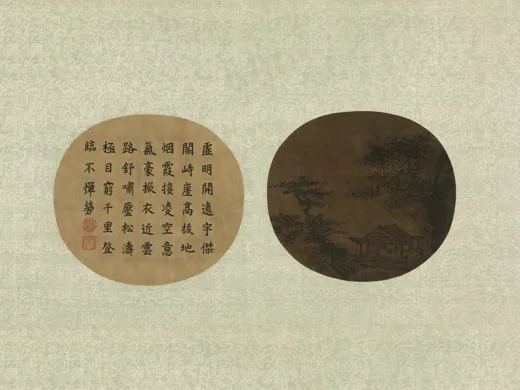 虛明開遠宇傑
閣峙崖高拔地
烟霞接凌空意
氣豪振衣近雲
路舒嘯壓松濤
極目窮千里登
臨不憚勞